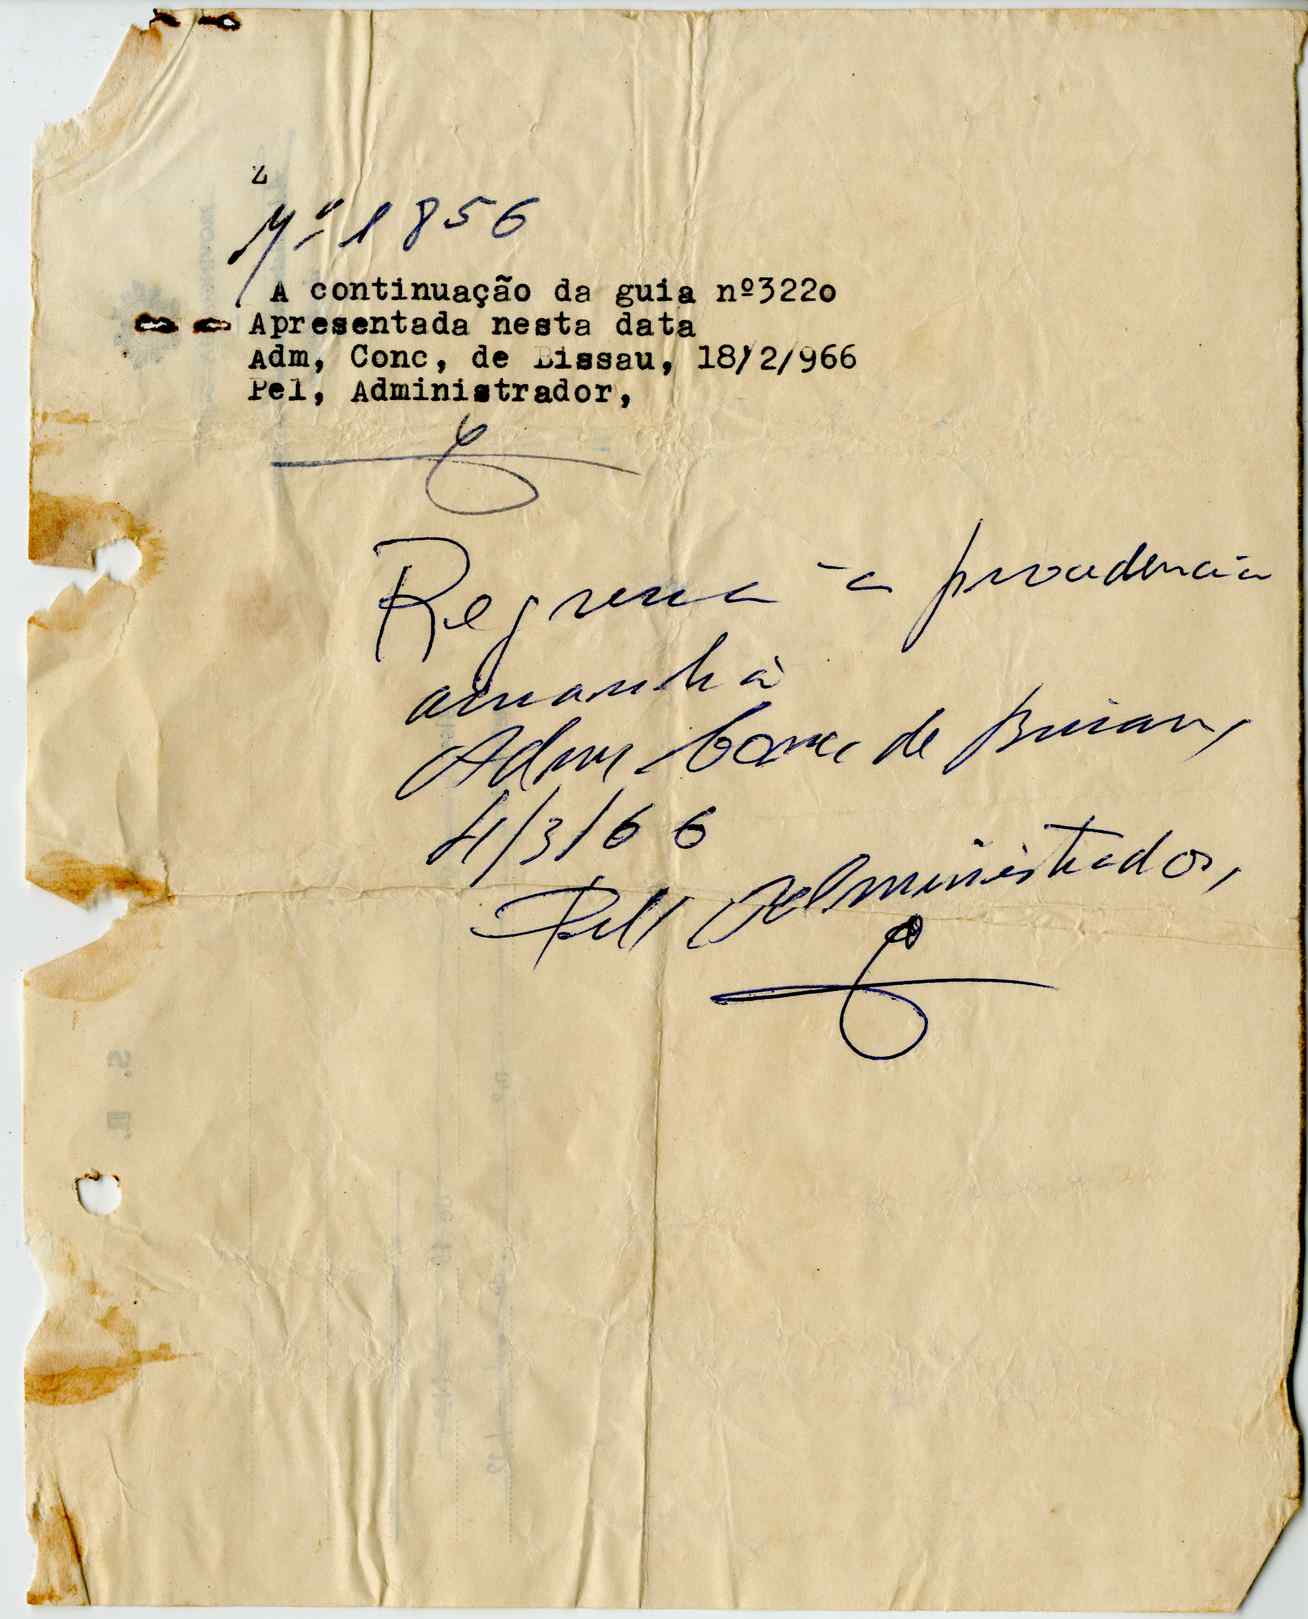 Z
Nº 1856
A continuação da guia nº322o
Apresentada nesta data
Adm, Conc, de Bissau, 18/2/966
Pel, Administrador,
Regressa à procedencia
amanhã
Adm. Conc de Bissau,
4/3/66
Pel Administrador,